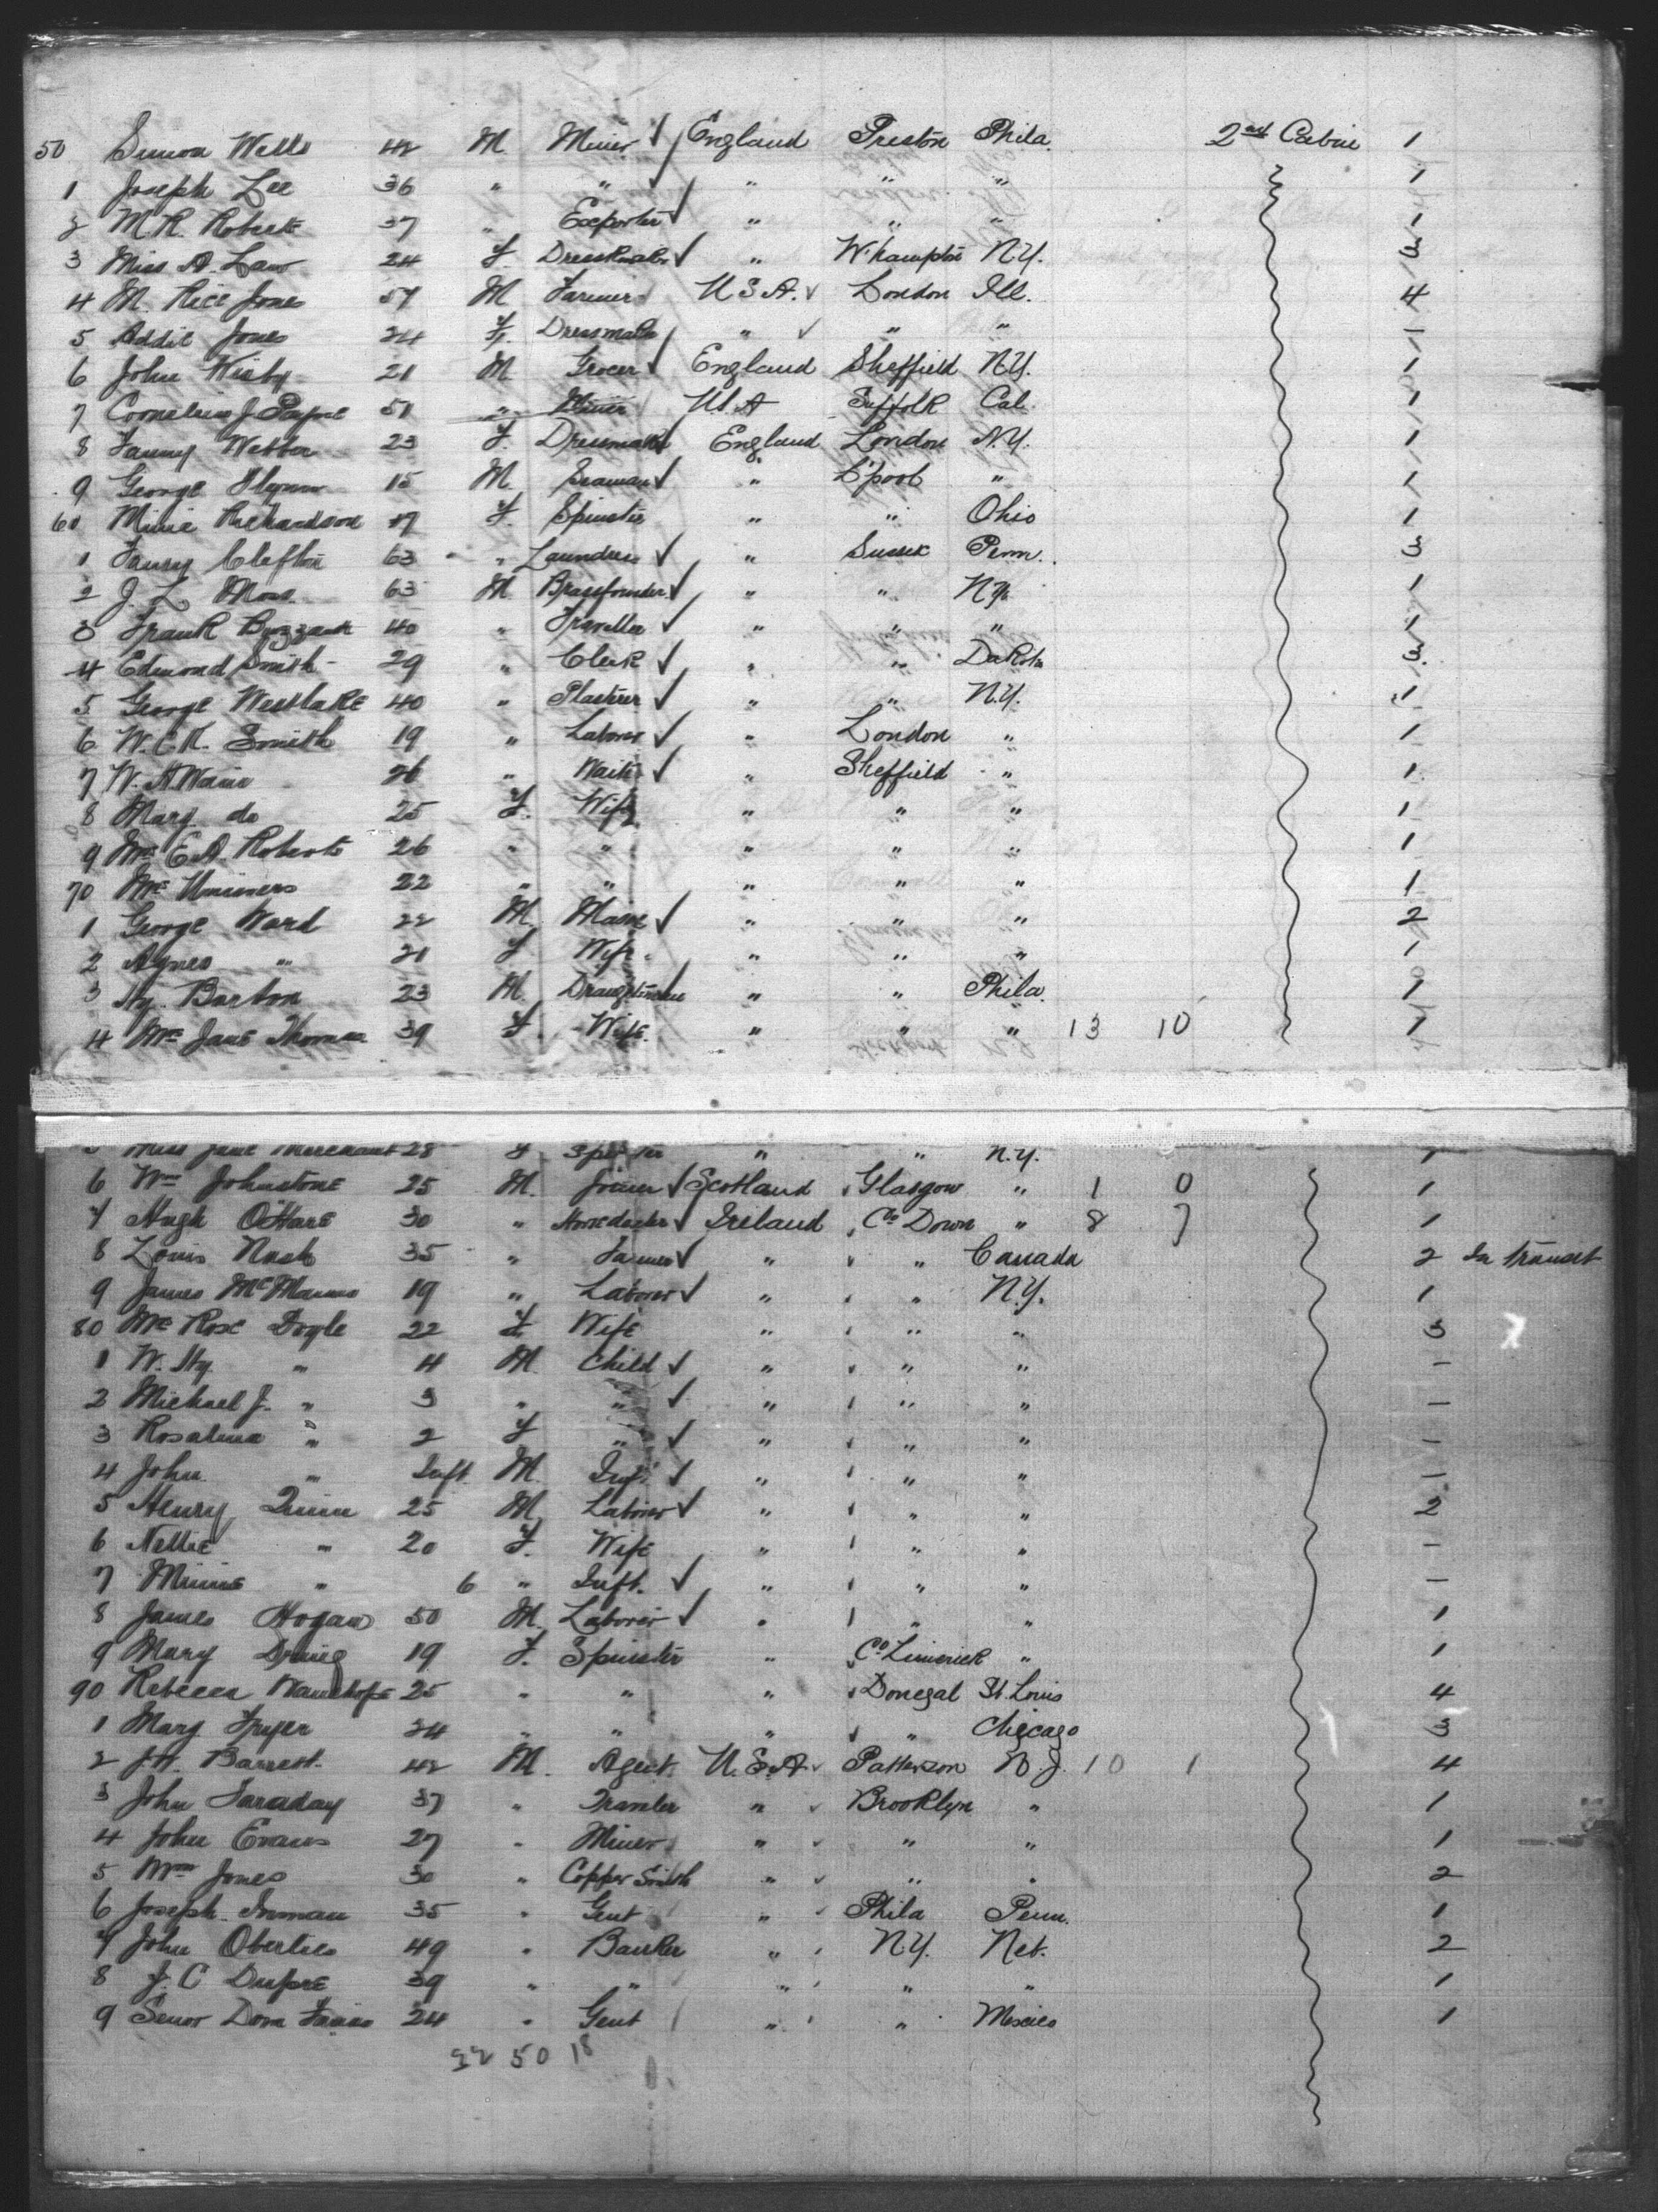 50 Simon Wells 42 M. Miner England Preston Phila. 2nd Cabin 1
1 Joseph Lee 36 " " " " " 1
2 M.R. Roberts 37 " Exporter " " " 1
3 Miss A. Law 24 F. Dressmaker " W'hampton N.Y. 3
4 M. Rice Jones 57 M Farmer U.S.A. London Ill. 4
5 Addie Jones 24 F. Dressmaker " " " —
6 John Wisby 21 M. Grocer England Sheffield N.Y. 1
7 Cornelius J. 51 " Miner U.S.A Suffolk Cal. 1
8 Fanny Webber 23 F. Dressmaker England London N.Y. 1
9 George Flynn 15 M. Seaman " L'pool " 1
60 Minie Richardson 17 F. Spinster " " Ohio 1
1 Fanny Clifton 63 " Laundress " Sussex Penn. 3
2 J. L. Moss 63 M. Brassfounder " " N.Y. 1
3 Frank 40 " Traveller " " " 1
4 Edmond Smith 29 " Clerk " " Dakota 3.
5 George Westlake 40 " Plasterer " " N.Y. 1
6 W.C.K. Smith 19 " Laborer " London " 1
7 W. A. Wain 26 " Waiter " Sheffield " 1
8 Mary do 25 F. Wife " " " 1
9 Mrs E.A. Roberts 26 " " " " " 1
70 Mrs 22 " " " " " 1
1 George Ward 22 M. Mason " " " 2
2 Agnes " 21 F Wife " " " 1
3 Hy. Barton 23 M. Draughtsman " " Phila. 1
4 Mrs Jane Thomas 39 F. Wife. " " " 13 10 1
5 Miss Jane Merchant 28 F Spinster " " N.Y. 1
6 Wm Johnstone 25 M. Joiner Scotland Glasgow " 1 0 1
7 Hugh O'Hare 30 " Horsedealer Ireland Co Down " 8 7 1
8 Louis Nash 35 " Farmer " " Canada 2 In transit
9 James McManus 19 " Laborer " " N.Y. 1
80 Mrs Rose Doyle 22 F. Wife " " " 3
1 W. Hy. " 4 M. Child " " " —
2 Michael J. " 3 " " " " " —
3 Rosalina " 2 F " " " " —
4 John " Inft. M. Inft " " " —
5 Henry Quinn 25 M. Laborer " " " 2
6 Nellie " 20 F. Wife " " " —
7 Minnie " 6 " Inft. " " " —
8 James Hogan 50 M. Laborer " " " 1
9 Mary 19 F. Spinster " Co Limerick " 1
90 Rebecca Wauchope 25 " " " Donegal St. Louis 4
1 Mary Fryer 24 " " " " Chicago 3
2 J.H. Barrett 42 M. Agent. U.S.A. Patterson N.J. 10 1 4
3 John Faraday 37 " Traveler " Brooklyn " 1
4 John Evans 27 " Miner " " " 1
5 Wm Jones 30 " Copper Smith " " " 2
6 Joseph Inman 35 " Gent " Phila Penn. 1
7 John Oberlies 49 " Banker " N.Y. Neb. 2
8 J. C Dupre 39 " " " " " 1
9 Senor Dom 24 " Gent " " Mexico 1
32 50 18